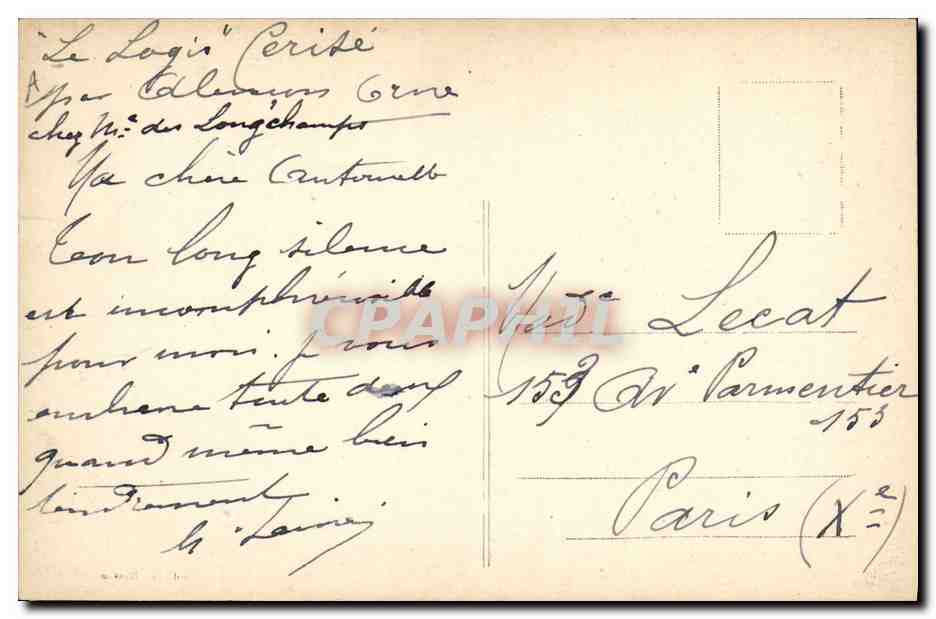 "Le Logis" Cerisé
par Alençon Orne
chez Me des Longchamps
Ma chère Antoinette
Ton long silence
est incompréhensible
pour moi. Je vous
embrasse toute deux
quand même bien
tendrement
CPAPHIL
Made Lecat
153 Av Parmentier
153
Paris (Xe)